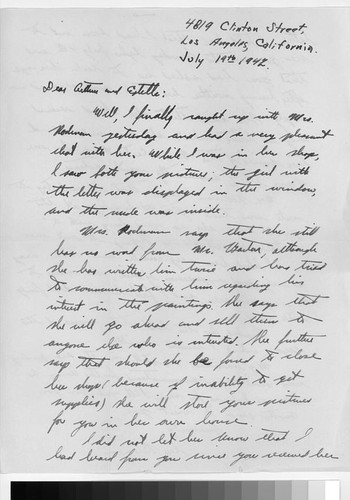 4819 Clinton Street,
Los Angeles, California.
July 19th 1942.
Dear Arthur and Estelle:
Well, I finally caught up with Mrs.
yesterday and had a very pleasant
chat with her. While I was in her shop,
I saw both your pictures; the girl with
the letter was displayed in the window,
and the nude was inside.
Mrs. says that she still
has no word from Mr. although
she has written him twice and has tried
to communicate with him regarding his
interest in the paintings. She says that
she will go ahead and sell them to
anyone else who is interested. She further
says that should she be forced to close
her shop (because of inability to get
supplies) she will store your pictures
for you in her own house.
I did not let her know that I
had heard from you since you received her